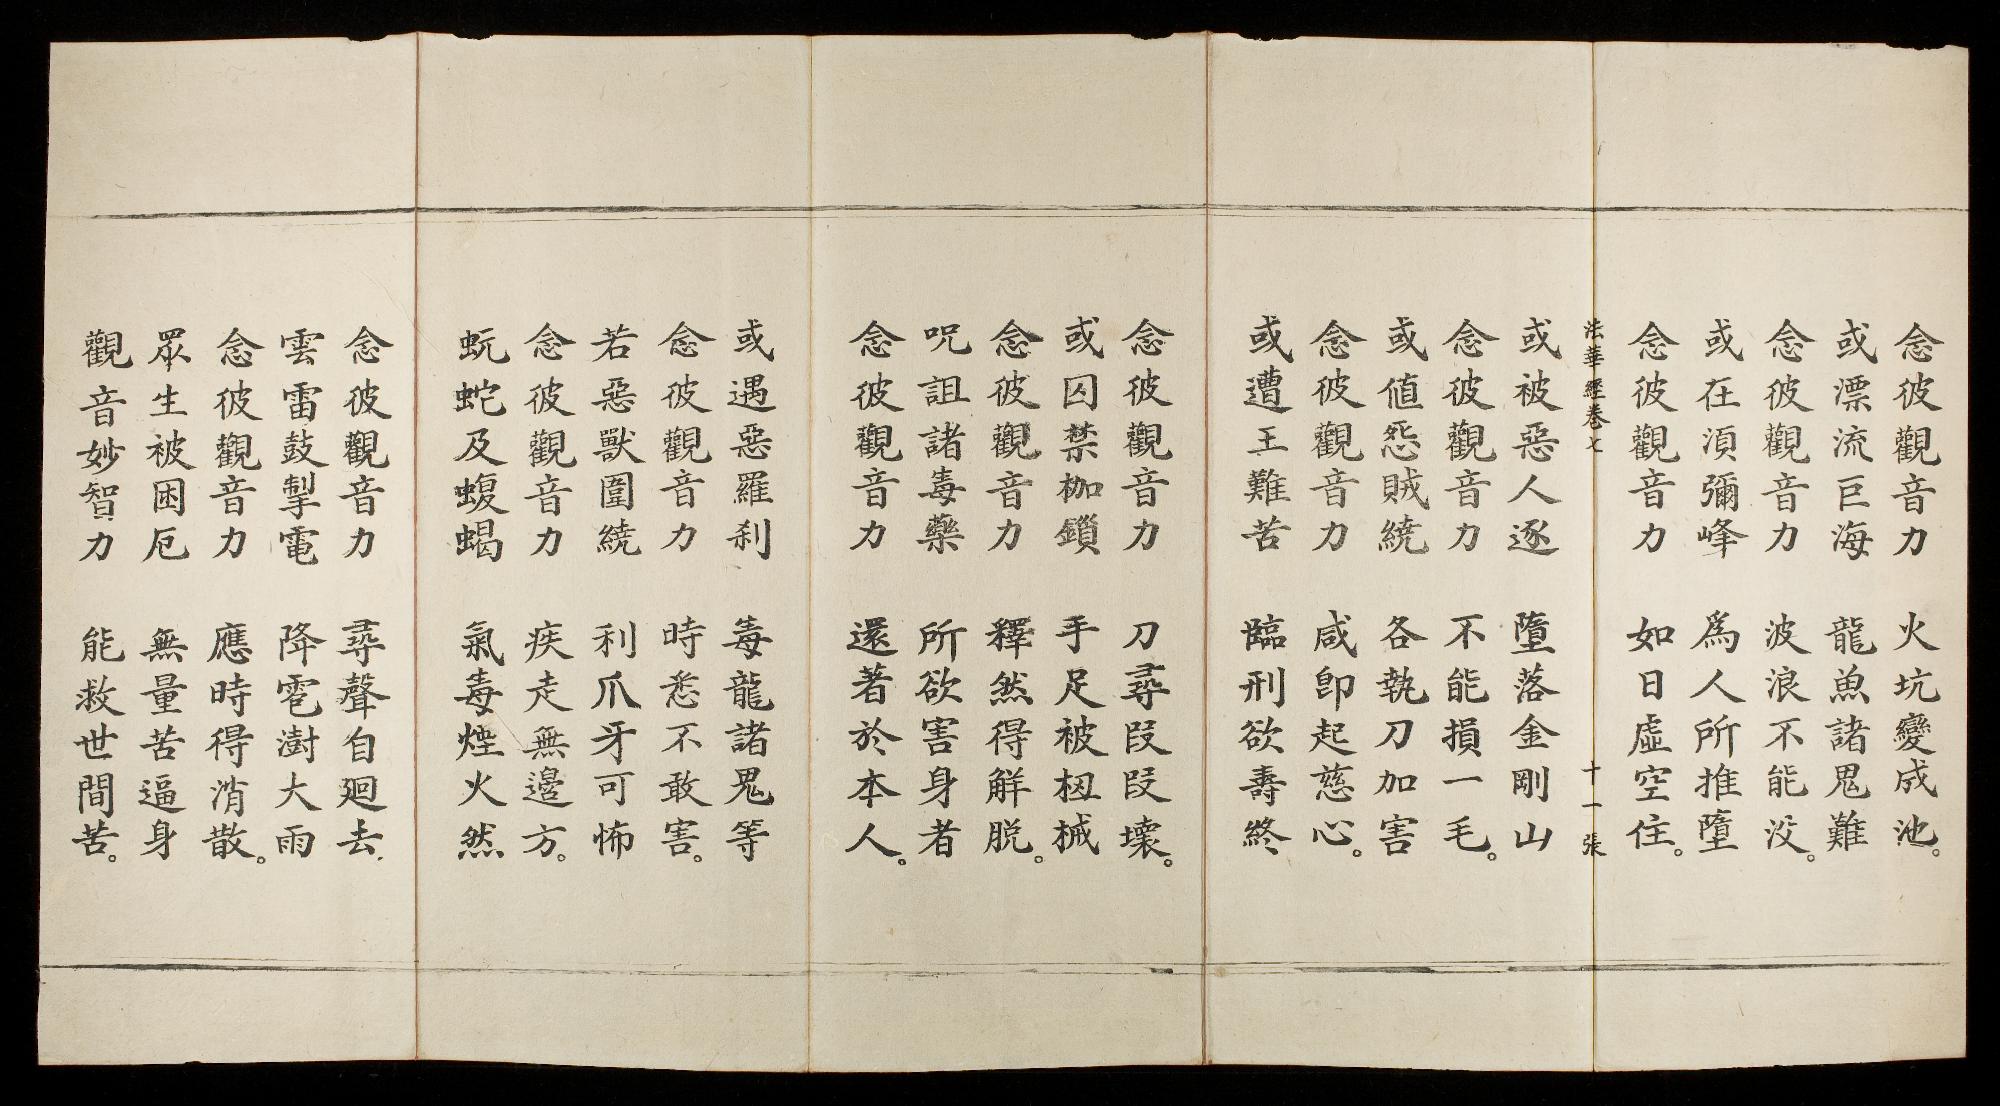 念彼觀音力　火坑變成池。
或漂流巨海　龍魚諸鬼難
念彼觀音力　波浪不能没。
或在湏彌峰　爲人所推墮
念彼觀音力　如日虛空住。
法華經卷七　十一張
或被惡人逐　墮落金剛山
念彼觀音力　不能損一毛。
或値怨賊繞　各執刀加害
念彼觀音力　咸卽起慈心。
或遭王難苦　臨刑欲壽終
念彼觀音力　刀尋段段壞。
或囚禁枷鎖　手足被杻械
念彼觀音力　釋然得解脱。
呪詛諸毒藥　所欲害身者
念彼觀音力　還著於本人。
或遇惡羅刹　毒龍諸鬼等
念彼觀音力　時悉不敢害。
若惡獸圍繞　利爪牙可怖
念彼觀音力　疾走無邊方。
蚖蛇及蝮蝎　氣毒煙火然
念彼觀音力　尋聲自廻去。
雲雷鼓掣電　降雹澍大雨
念彼觀音力　應時得消散。
眾生被困厄　無量苦逼身
觀音妙智力　能救世間苦。